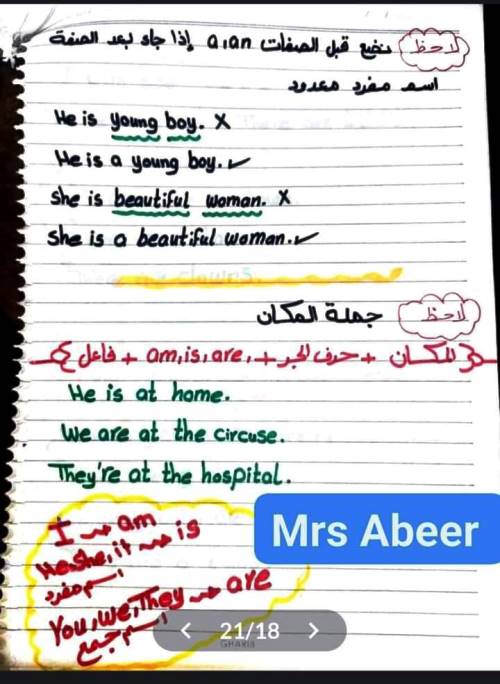 لاحظ نضع قبل الصفات a,an إذا جاء بعد الصفة
اسم مفرد معدود
He is young boy. X
He is a young boy. ✓
She is beautiful woman. X
She is a beautiful woman. ✓
لاحظ جملة المكان
فاعل + am, is, are, + حرف الجر + المكان
He is at home.
We are at the circuse.
They're at the hospital.
I → am
He, she, it → is
اسم مفرد
You, we, They → are
اسم جمع
Mrs Abeer
< 21/18 >